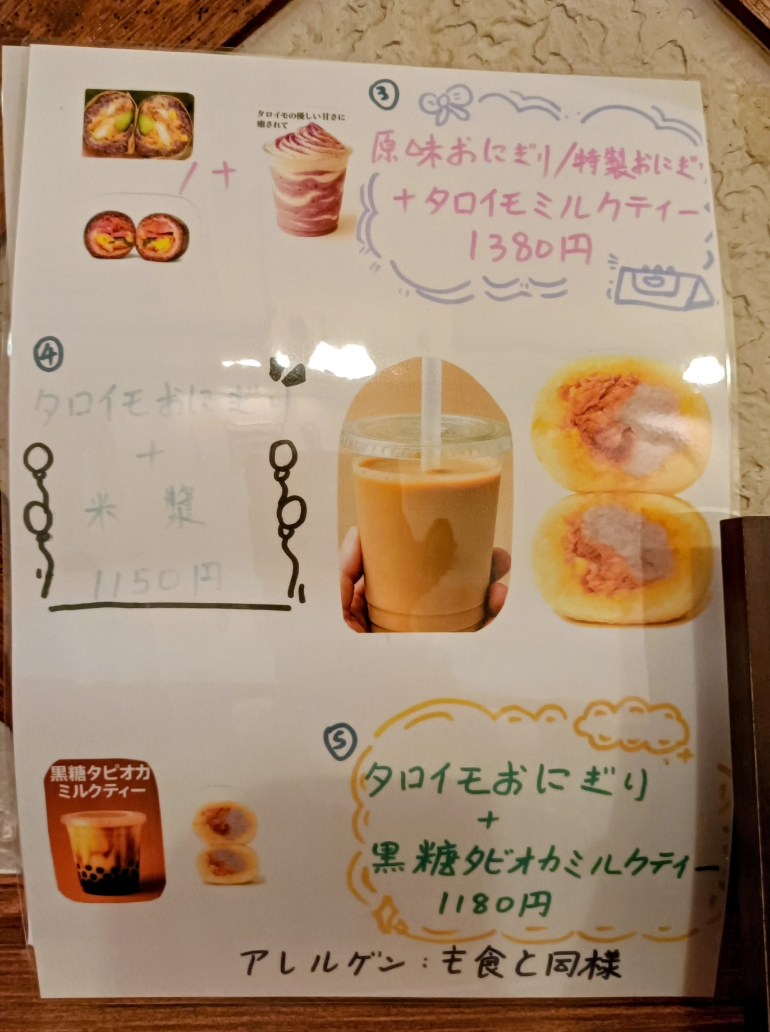 タロイモの優しい甘さに
癒されて
③
原味おにぎり/特製おにぎ
/+
+タロイモミルクティー
1380円
④
タロイモおにぎり
+
米漿
1150円
⑤
黒糖タピオカ
ミルクティー
タロイモおにぎり
+
黒糖タピオカミルクティー
1180円
アレルゲン:も食と同様